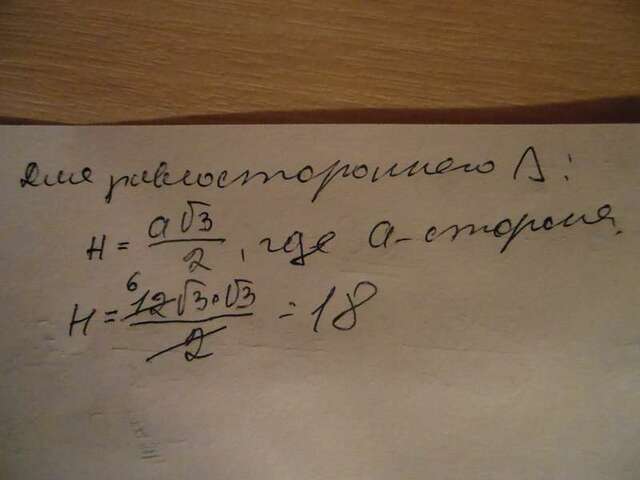 для равностороннего Δ:
H = a√3/2, где a - сторона.
H = 6 12√3·√3/2 = 18